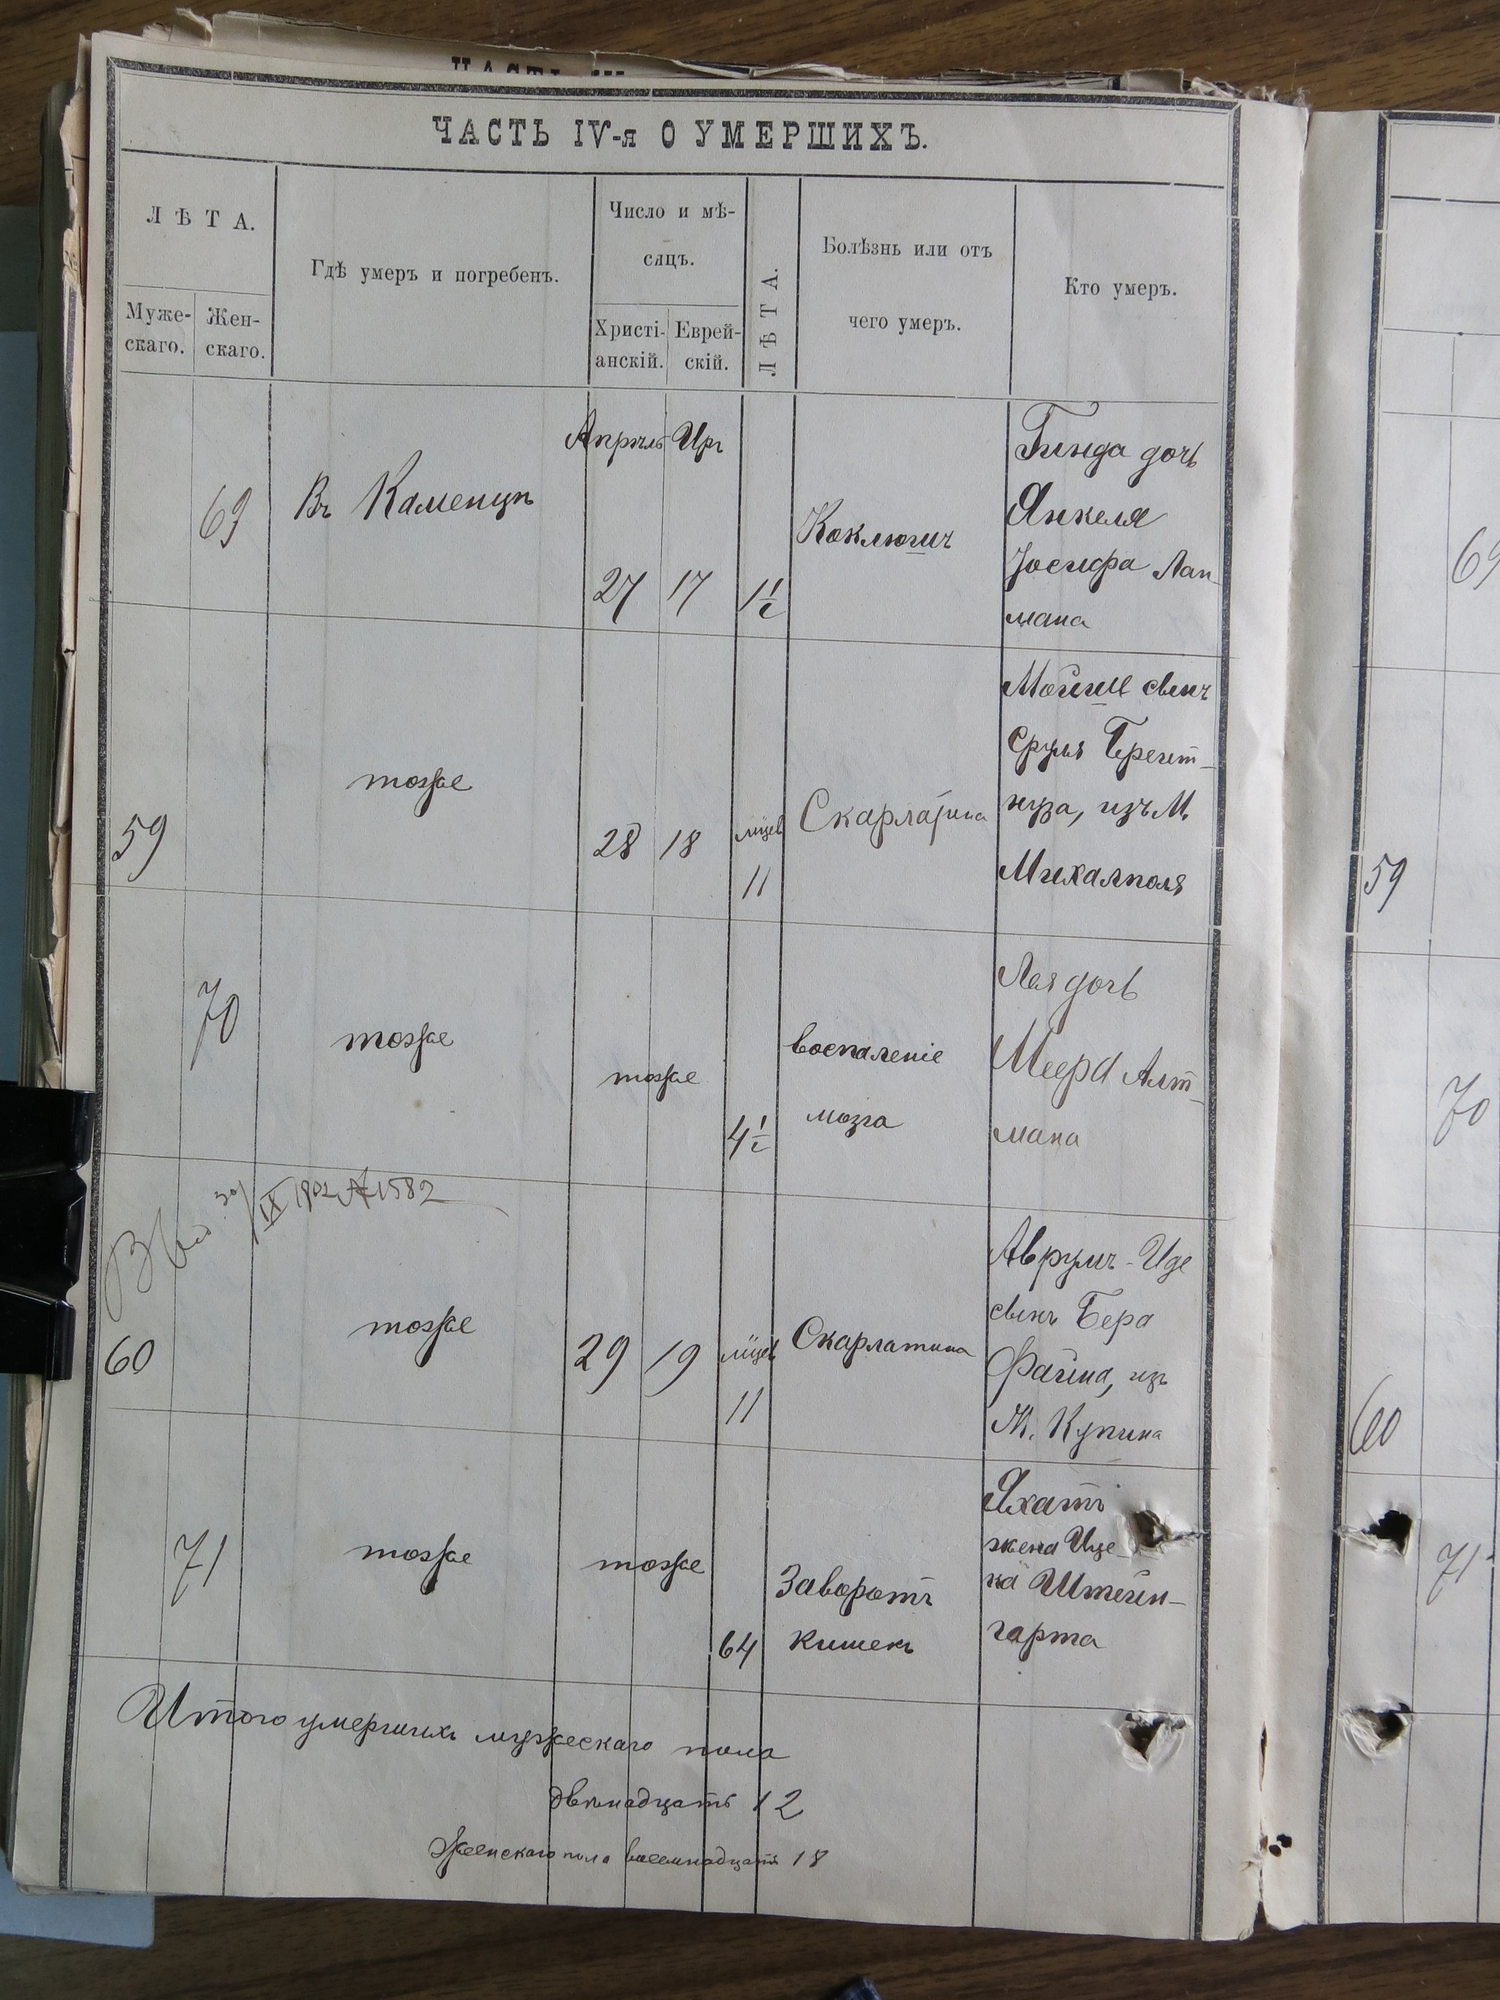 ЧАСТЬ IV-я О УМЕРШИХЪ.
ЛѢТА.
Муже-
скаго.
Жен-
скаго.
Гдѣ умеръ и погребенъ.
Число и мѣ-
сяцъ.
Христі-
анскій.
Еврей-
скій.
ЛѢТА.
Болѣзнь или отъ
чего умеръ.
Кто умеръ.
69
Въ Каменцѣ
Апрѣль Иръ
27 17 1½
Коклюшъ
Гинда дочь
Янкеля
Іосифа Лап-
мана
59
тоже
28 18 мцев
11
Скарлатина
Мойше сынъ
Сруля
изъ М.
Михалполя
70
тоже
тоже
4½
воспаленіе
мозга
Лея дочь
Меера Алт-
мана
30/IX 1902 № 1582
60
тоже
29 19 мцев
11
Скарлатина
Аврумъ-Иде
сынъ Бера
Файна, изъ
М. Купина
71
тоже
тоже
64
Заворотъ
кишекъ
жена Ице-
ка Штейн-
гарта
Итого умершихъ мужескаго пола
двѣнадцать 12
Женскаго пола восемнадцать 18
69
59
70
60
71